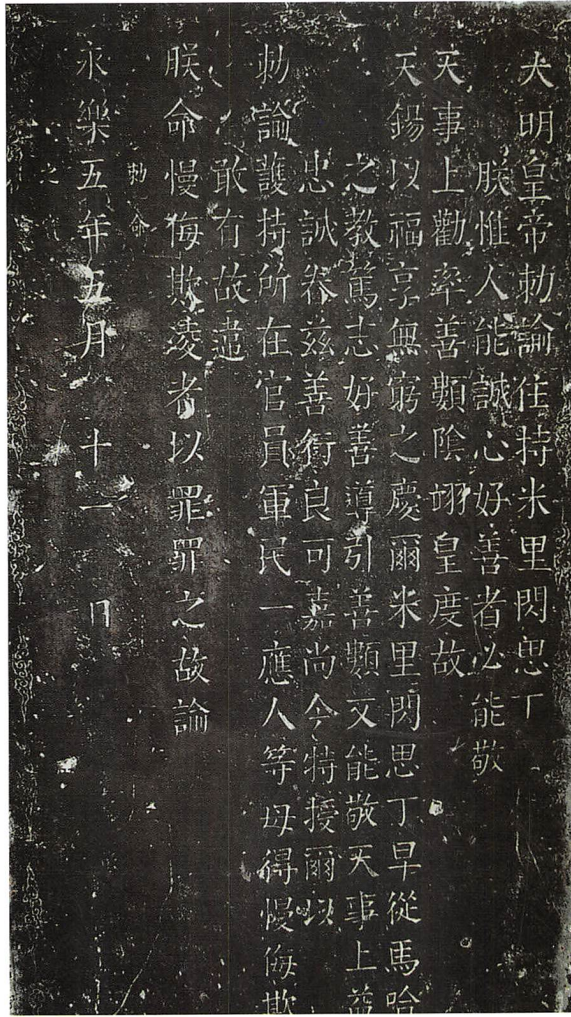 大明皇帝勅諭住持米里閃思丁
朕惟人能誠心好善者必能敬
天事上勸率善類陰翊皇度故
天錫以福享無窮之慶爾米里閃思丁早從馬哈
之教篤志好善導引善類又能敬天事上益
忠誠眷兹善行良可嘉尚今特授爾以
勅諭護持所在官員軍民一應人等毋得慢侮欺
敢有故違
朕命慢侮欺凌者以罪罪之故諭
勅命
永樂五年五月十一日
之